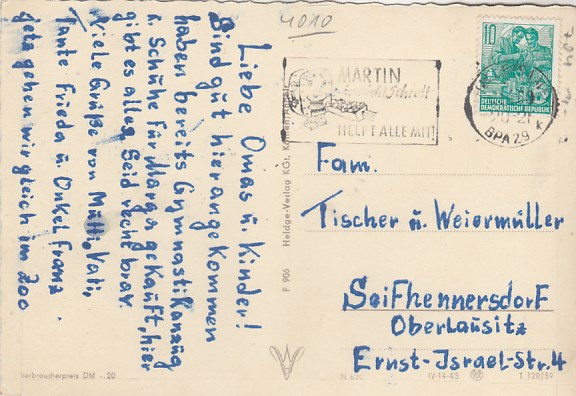 4010
Liebe Omas u. Kinder!
Sind gut hier angekommen
haben bereits Gymnastikanzug
u. Schuhe für Marga gekauft, hier
gibt es alles. Seid recht brav.
Viele Grüße von Mutti, Vati,
Tante Frieda u. Onkel Franz.
Jetz gehen wir gleich im Zoo
MARTIN
HELFT ALLE MIT!
10
DEUTSCHE
DEMOKRATISCHE REPUBLIK
BPA 29
Fam.
Tischer u. Weiermüller
Seifhennersdorf
Oberlausitz
Ernst-Israel-Str. 4
F 906 Heldge-Verlag KGr.
Verbraucherpreis DM -.20
IV-14-45
T 120/59